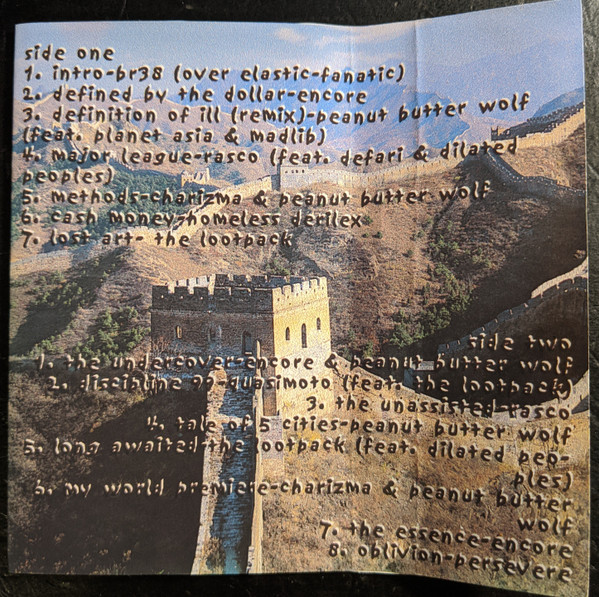 side one
1. intro-br38 (over elastic-fanatic)
2. defined by the dollar-encore
3. definition of ill (remix)-peanut butter wolf
(feat. planet asia & madlib)
4. major league-rasco (feat. defari & dilated
peoples)
5. methods-charizma & peanut butter wolf
6. cash money-homeless derilex
7. lost art- the lootpack
side two
1. the undercover-encore & peanut butter wolf
2. discipline 99-quasimoto (feat. the lootpack)
3. the unassisted-rasco
4. tale of 5 cities-peanut butter wolf
5. long awaited-the lootpack (feat. dilated peo-
ples)
6. my world premiere-charizma & peanut butter
wolf
7. the essence-encore
8. oblivion-persevere